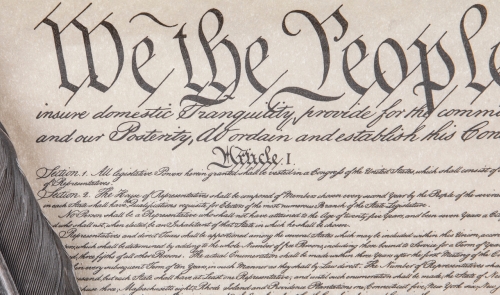 We the People
insure domestic Tranquility, provide for the comm
and our Posterity, do ordain and establish this Con
Article I.
Section 1. All legislative Powers herein granted shall be vested in a Congress of the United States, which shall consist of a
of Representatives.
Section 2. The House of Representatives shall be composed of Members chosen every second Year by the People of the
in each State shall have Qualifications requisite for Electors of the most numerous Branch of the State Legislature.
No Person shall be a Representative who shall not have attained to the Age of twenty five Years, and been seven Years a
and who shall not, when elected, be an Inhabitant of that State in which he shall be chosen.
Representatives and direct Taxes shall be apportioned among the several States which may be included within this Union,
which shall be determined by adding to the whole Number of free Persons, including those bound to Service for a Term of Years
three fifths of all other Persons. The actual Enumeration shall be made within three Years after the first Meeting of the
every subsequent Term of ten Years, in such Manner as they shall by Law direct. The Number of Representatives
but each State shall have at Least one Representative; and until such enumeration shall be made, the State of
three, Massachusetts eight, Rhode Island and Providence Plantations one, Connecticut five, New York six,